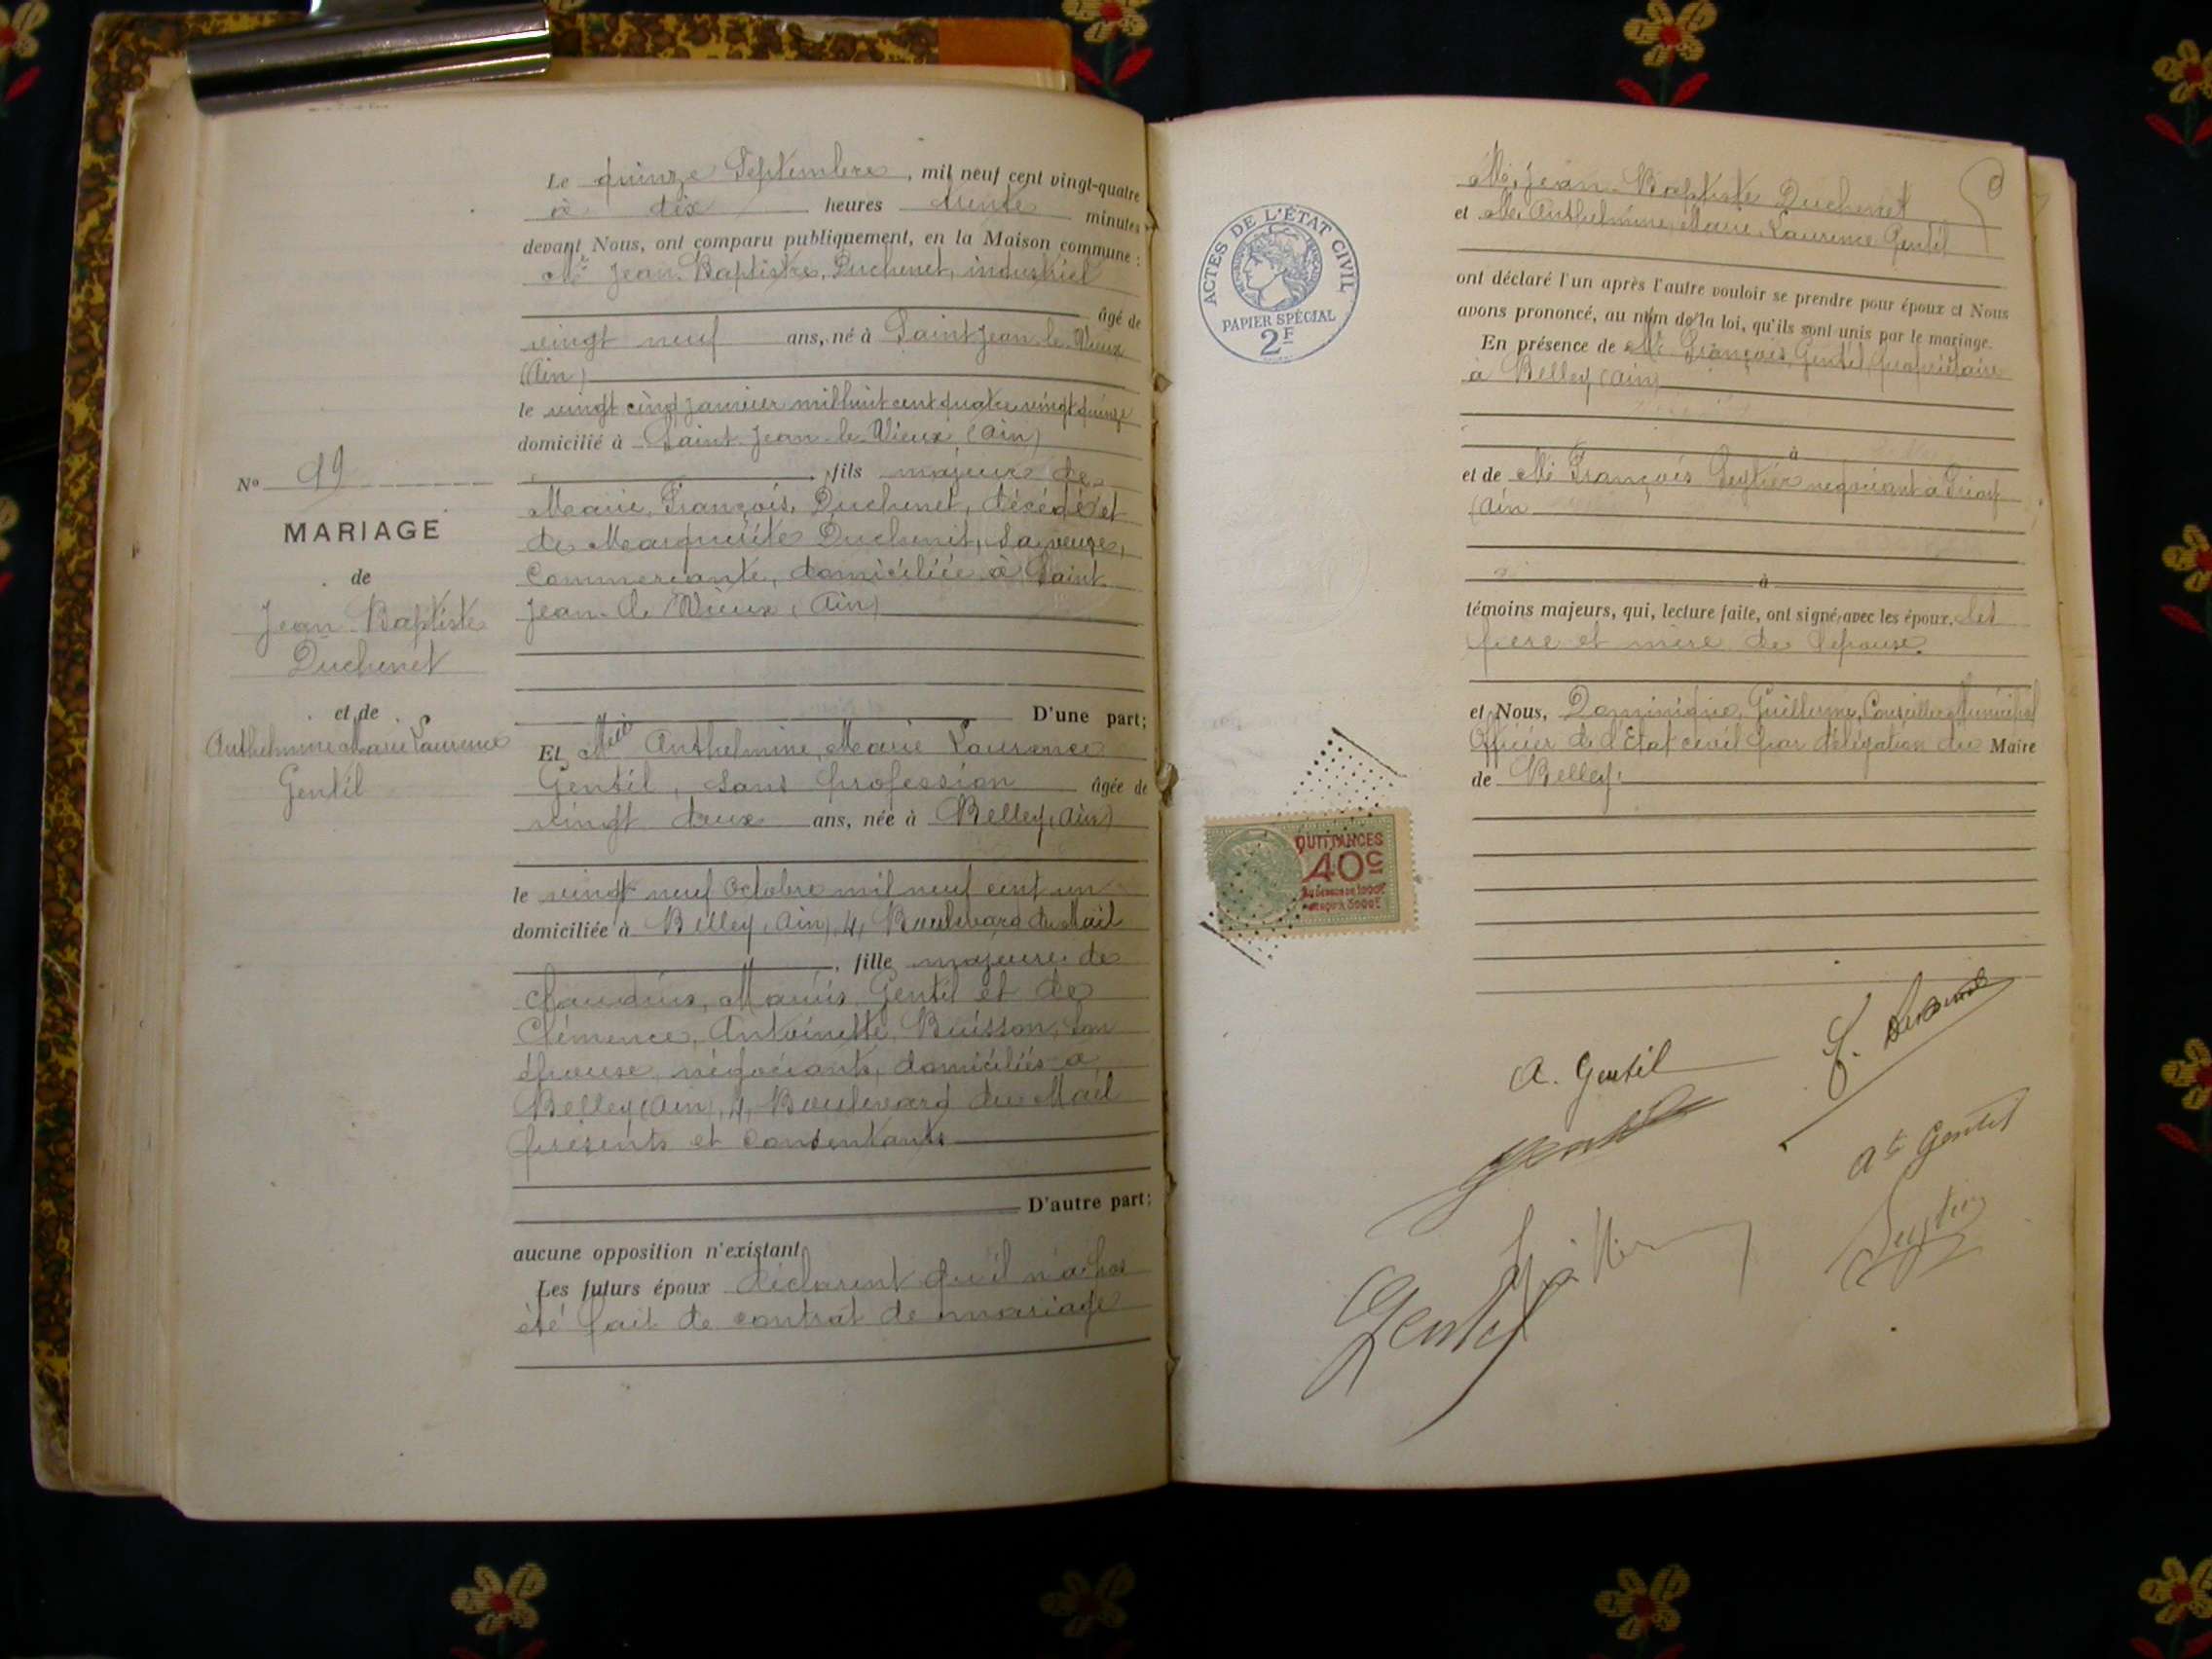 Le quinze Septembre, mil neuf cent vingt-quatre
à dix heures trente minutes
devant Nous, ont comparu publiquement, en la Maison commune :
Mr Jean Baptiste, Duchenet, industriel
âgé de
vingt neuf ans, né à Saint Jean-le-Vieux
(Ain)
le vingt cinq janvier mil huit cent quatre vingt quinze
domicilié à Saint Jean-le-Vieux (Ain)
, fils majeur de
Marie, François, Duchenet, décédé et
de Marguerite Duchenet, sa veuve,
Commerçante, domiciliée à Saint
Jean-le-Vieux (Ain)
D'une part;
Et Melle Anthelmine, Marie Laurence
Gentil, sans profession âgée de
vingt deux ans, née à Belley (Ain)
le vingt neuf Octobre mil neuf cent un
domiciliée à Belley (Ain), 4, Boulevard du Mail
, fille majeure de
Claudius, Marius, Gentil et de
Clémence, Antoinette, Buisson, son
épouse, négociants, domiciliés à
Belley (Ain), 4, Boulevard du Mail
présents et consentants
D'autre part;
aucune opposition n'existant
Les futurs époux déclarent qu'il n'a pas
été fait de contrat de mariage
No 49
MARIAGE
de
Jean Baptiste
Duchenet
et de
Anthelmine Marie Laurence
Gentil
Mr Jean-Baptiste Duchenet
et Me Anthelmine, Marie, Laurence Gentil
ont déclaré l'un après l'autre vouloir se prendre pour époux et Nous
avons prononcé, au nom de la loi, qu'ils sont unis par le mariage.
En présence de Mr François Gentil, propriétaire
à Belley (Ain)
à
et de Mr François négociant à
(Ain
à
témoins majeurs, qui, lecture faite, ont signé avec les époux, les
père et mère de l'épouse.
et Nous, Dominique, Guillerme, Conseiller Municipal
Officier de l'Etat civil par délégation du Maire
de Belley.
ACTES DE L'ÉTAT CIVIL
PAPIER SPÉCIAL
2F
QUITTANCES
40c
A. Gentil
Gentil
At Gentil
Gentil